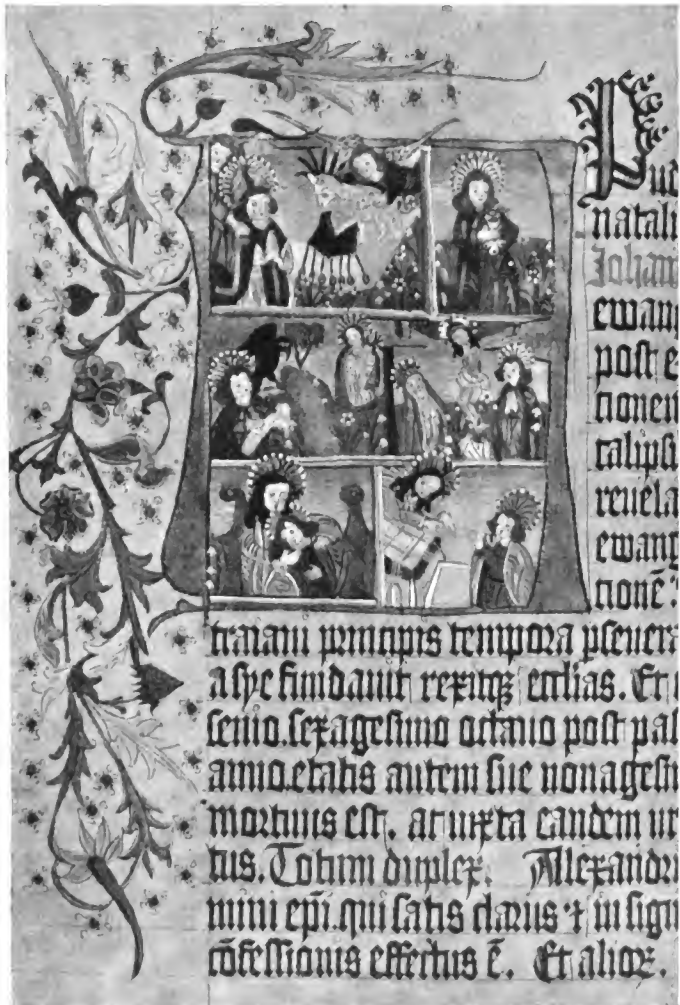 natali
Johan
ewan
post e
tionem
calipsi
revela
ewang
tionē
traiani principis tempora pseuera
asye fundauit rexitqꝫ ecclias. Et
senio. sexagesimo octauo post pas
anno. etatis autem sue nonagesi
mortuus est. ac iuxta eandem ur
tus. Totum duplex. Allexandri
mini epi. qui satis clarus ⁊ insign
cōfessionis effectus ē. Et alioꝝ.